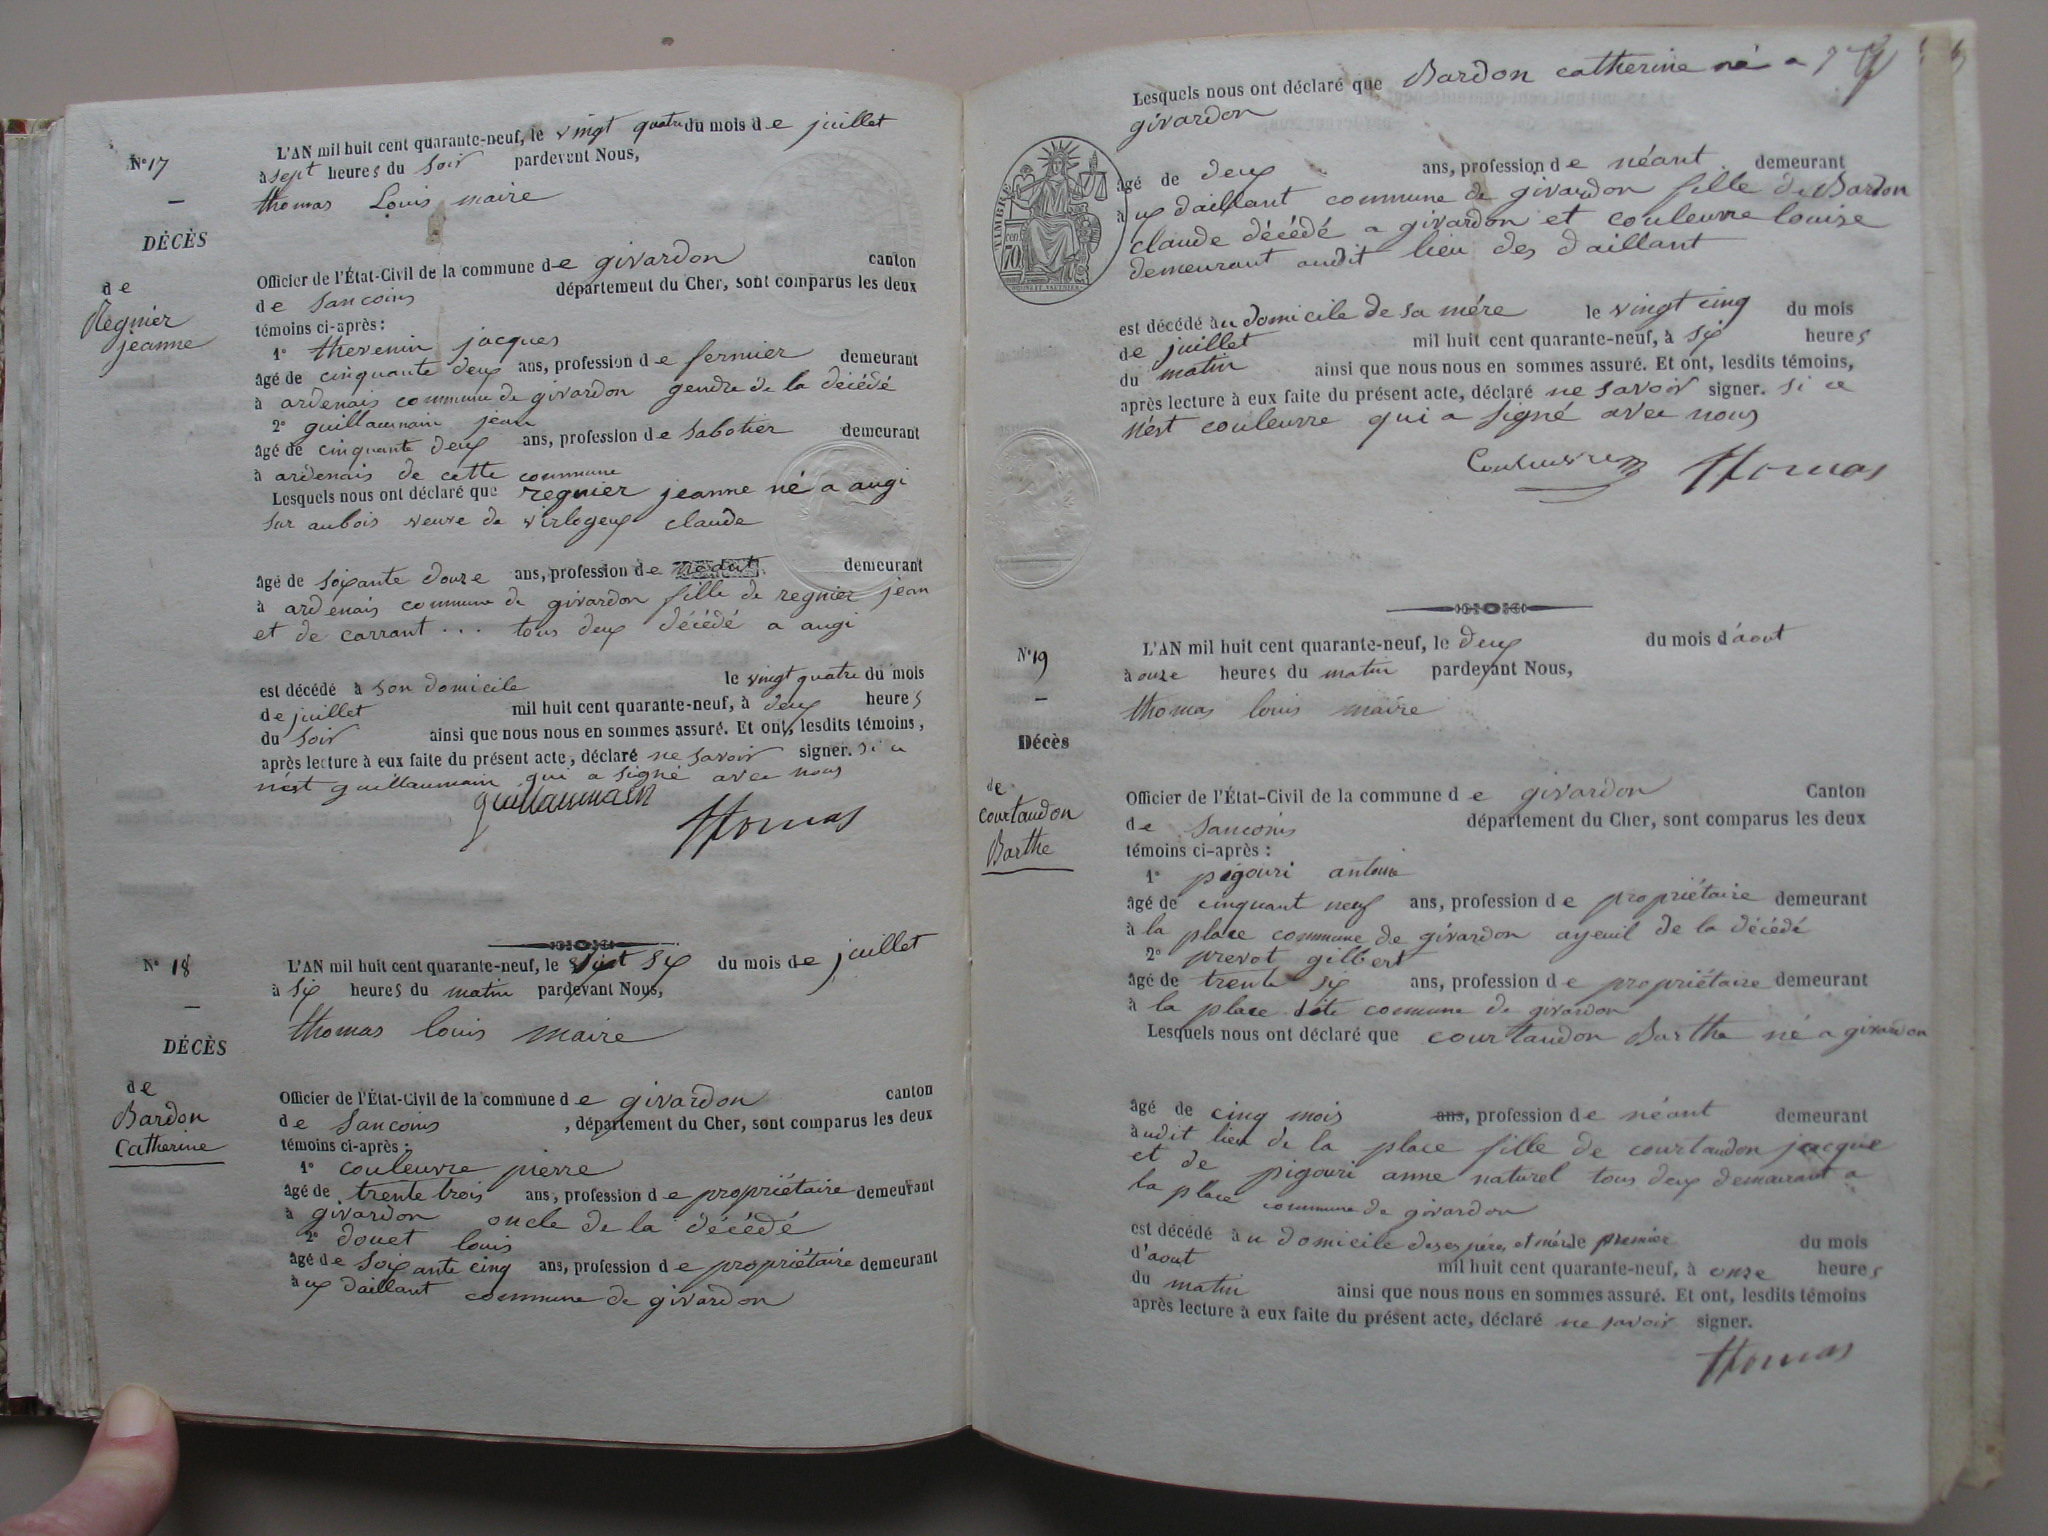 N° 17
—
DÉCÈS
de
Regnier
jeanne
L'AN mil huit cent quarante-neuf, le vingt quatre du mois de juillet
à sept heures du soir pardevent Nous,
thomas Louis maire
Officier de l'État-Civil de la commune de givardon canton
de Sancoins département du Cher, sont comparus les deux
témoins ci-après :
1° thevenin jacques
âgé de cinquante deux ans, profession de fermier demeurant
à ardenais commune de givardon gendre de la décédé
2° guillaumain jean
âgé de cinquante deux ans, profession de Sabotier demeurant
à ardenais de cette commune
Lesquels nous ont déclaré que regnier jeanne né a augi
sur aubois veuve de virlogeux claude
âgé de soixante douze ans, profession de néant demeurant
à ardenais commune de givardon fille de regnier jean
et de carrant ... tous deux décédé a augi
est décédé à son domicile le vingt quatre du mois
de juillet mil huit cent quarante-neuf, à deux heures
du soir ainsi que nous nous en sommes assuré. Et ont, lesdits témoins,
après lecture à eux faite du présent acte, déclaré ne savoir signer. si ce
n'est guillaumain qui a signé avec nous
guillaumain
Thomas
N° 18
—
DÉCÈS
de
Bardon
Catherine
L'AN mil huit cent quarante-neuf, le vingt six du mois de juillet
à six heures du matin pardevant Nous,
thomas louis maire
Officier de l'État-Civil de la commune de givardon canton
de Sancoins , département du Cher, sont comparus les deux
témoins ci-après :
1° couleuvre pierre
âgé de trente trois ans, profession de propriétaire demeurant
à givardon oncle de la décédé
2° douet louis
âgé de soixante cinq ans, profession de propriétaire demeurant
à ux daillant commune de givardon
Lesquels nous ont déclaré que Bardon catherine né a
givardon
TIMBRE
70
âgé de deux ans, profession de néant demeurant
à ux daillant commune de givardon fille de Bardon
claude décédé a givardon et couleuvre louise
demeurant audit lieu des daillant
est décédé au domicile de sa mére le vingt cinq du mois
de juillet mil huit cent quarante-neuf, à six heures
du matin ainsi que nous nous en sommes assuré. Et ont, lesdits témoins,
après lecture à eux faite du présent acte, déclaré ne savoir signer. si ce
n'est couleuvre qui a signé avec nous
Couleuvre Thomas
N° 19
—
Décès
de
courtaudon
Barthe
L'AN mil huit cent quarante-neuf, le deux du mois d'aout
à onze heures du matin pardevant Nous,
thomas louis maire
Officier de l'État-Civil de la commune de givardon Canton
de Sancoins département du Cher, sont comparus les deux
témoins ci-après :
1° pigouri antoine
âgé de cinquant neuf ans, profession de propriétaire demeurant
à la place commune de givardon ayeuil de la décédé
2° prevot gilbert
âgé de trente six ans, profession de propriétaire demeurant
à la place dite commune de givardon
Lesquels nous ont déclaré que courtaudon Barthe né a givardon
âgé de cinq mois ans, profession de néant demeurant
à udit lieu de la place fille de courtaudon jacque
et de pigouri anne naturel tous deux demeurant a
la place commune de givardon
est décédé à u domicile de ses péres et méres le premier du mois
d'aout mil huit cent quarante-neuf, à onze heures
du matin ainsi que nous nous en sommes assuré. Et ont, lesdits témoins
après lecture à eux faite du présent acte, déclaré ne savoir signer.
Thomas